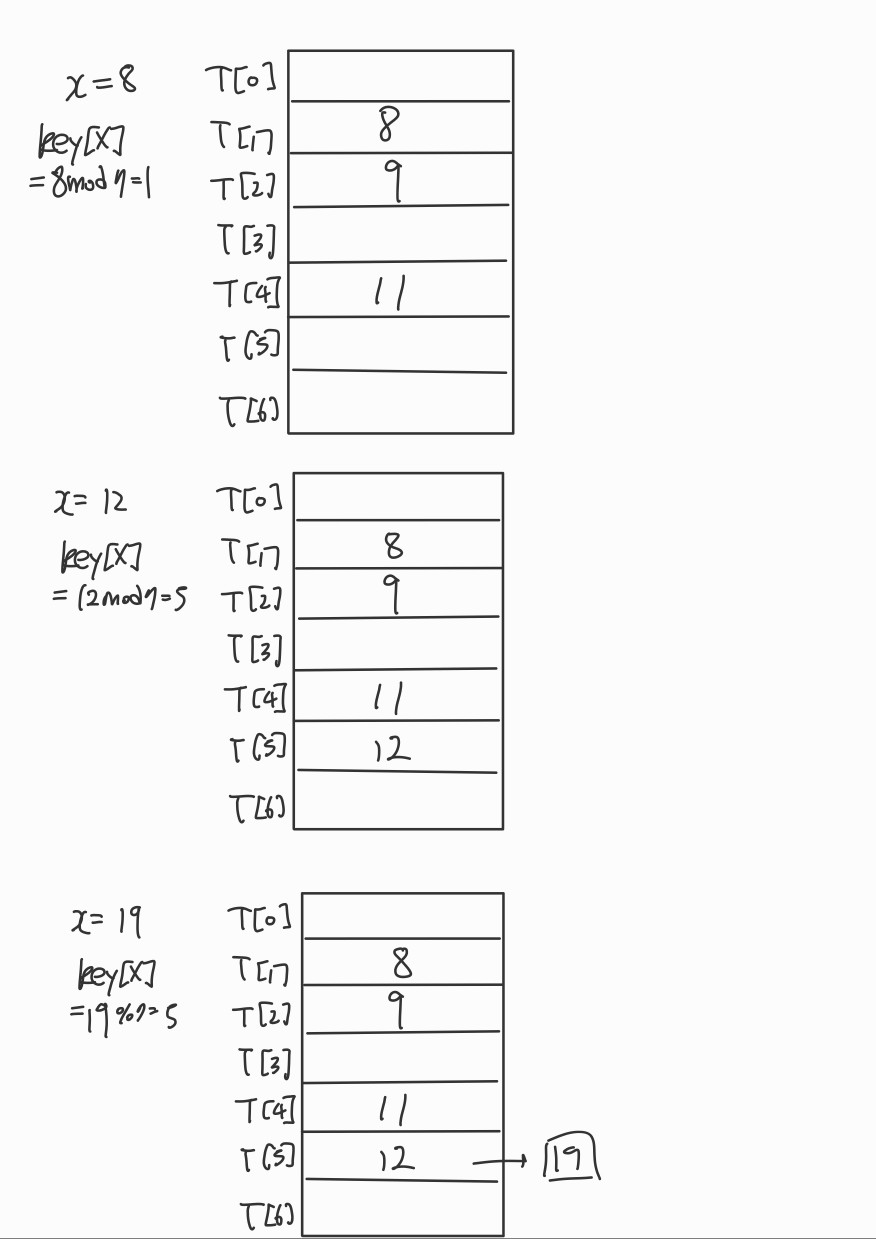 x = 8
key[x]
= 8 mod 7 = 1
T[0]
T[1] 8
T[2] 9
T[3]
T[4] 11
T[5]
T[6]
x = 12
key[x]
= 12 mod 7 = 5
T[0]
T[1] 8
T[2] 9
T[3]
T[4] 11
T[5] 12
T[6]
x = 19
key[x]
= 19 % 7 = 5
T[0]
T[1] 8
T[2] 9
T[3]
T[4] 11
T[5] 12 → 19
T[6]